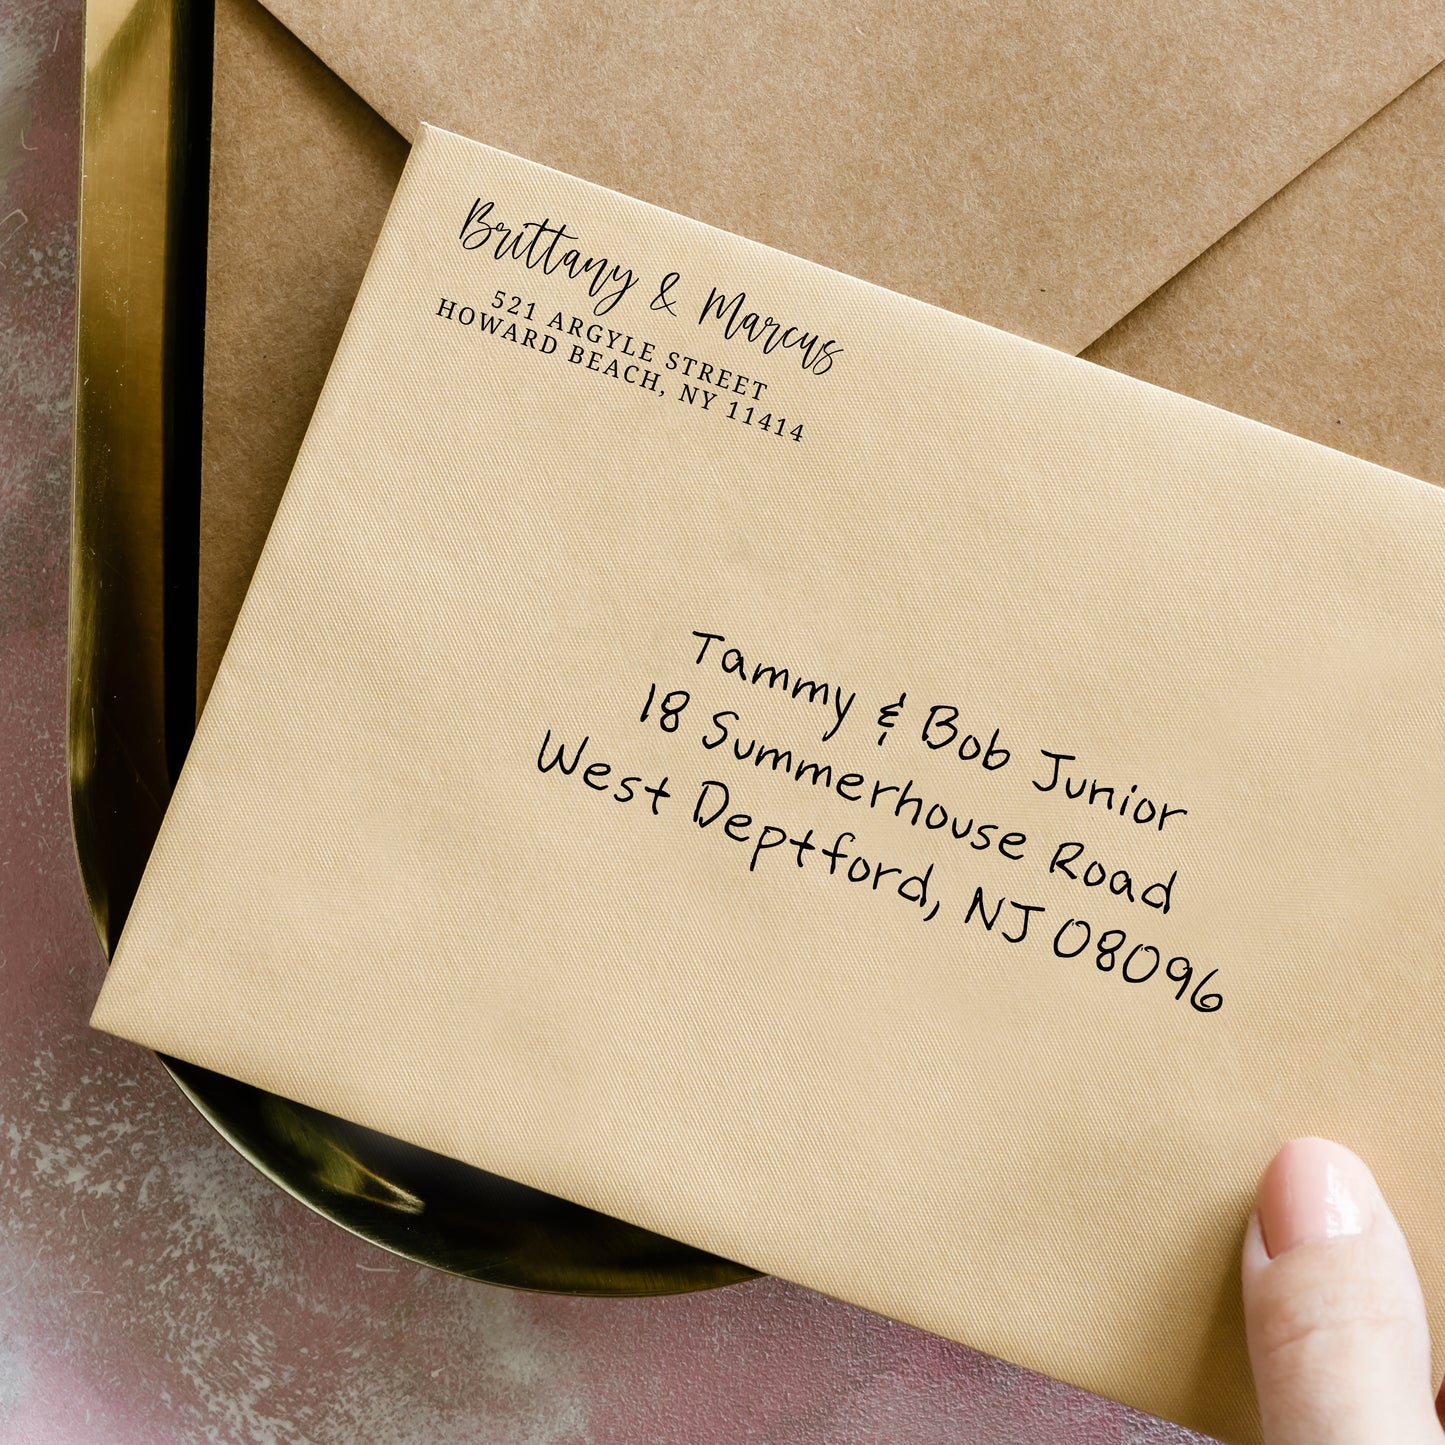 Brittany & Marcus
521 ARGYLE STREET
HOWARD BEACH, NY 11414
Tammy & Bob Junior
18 Summerhouse Road
West Deptford, NJ 08096